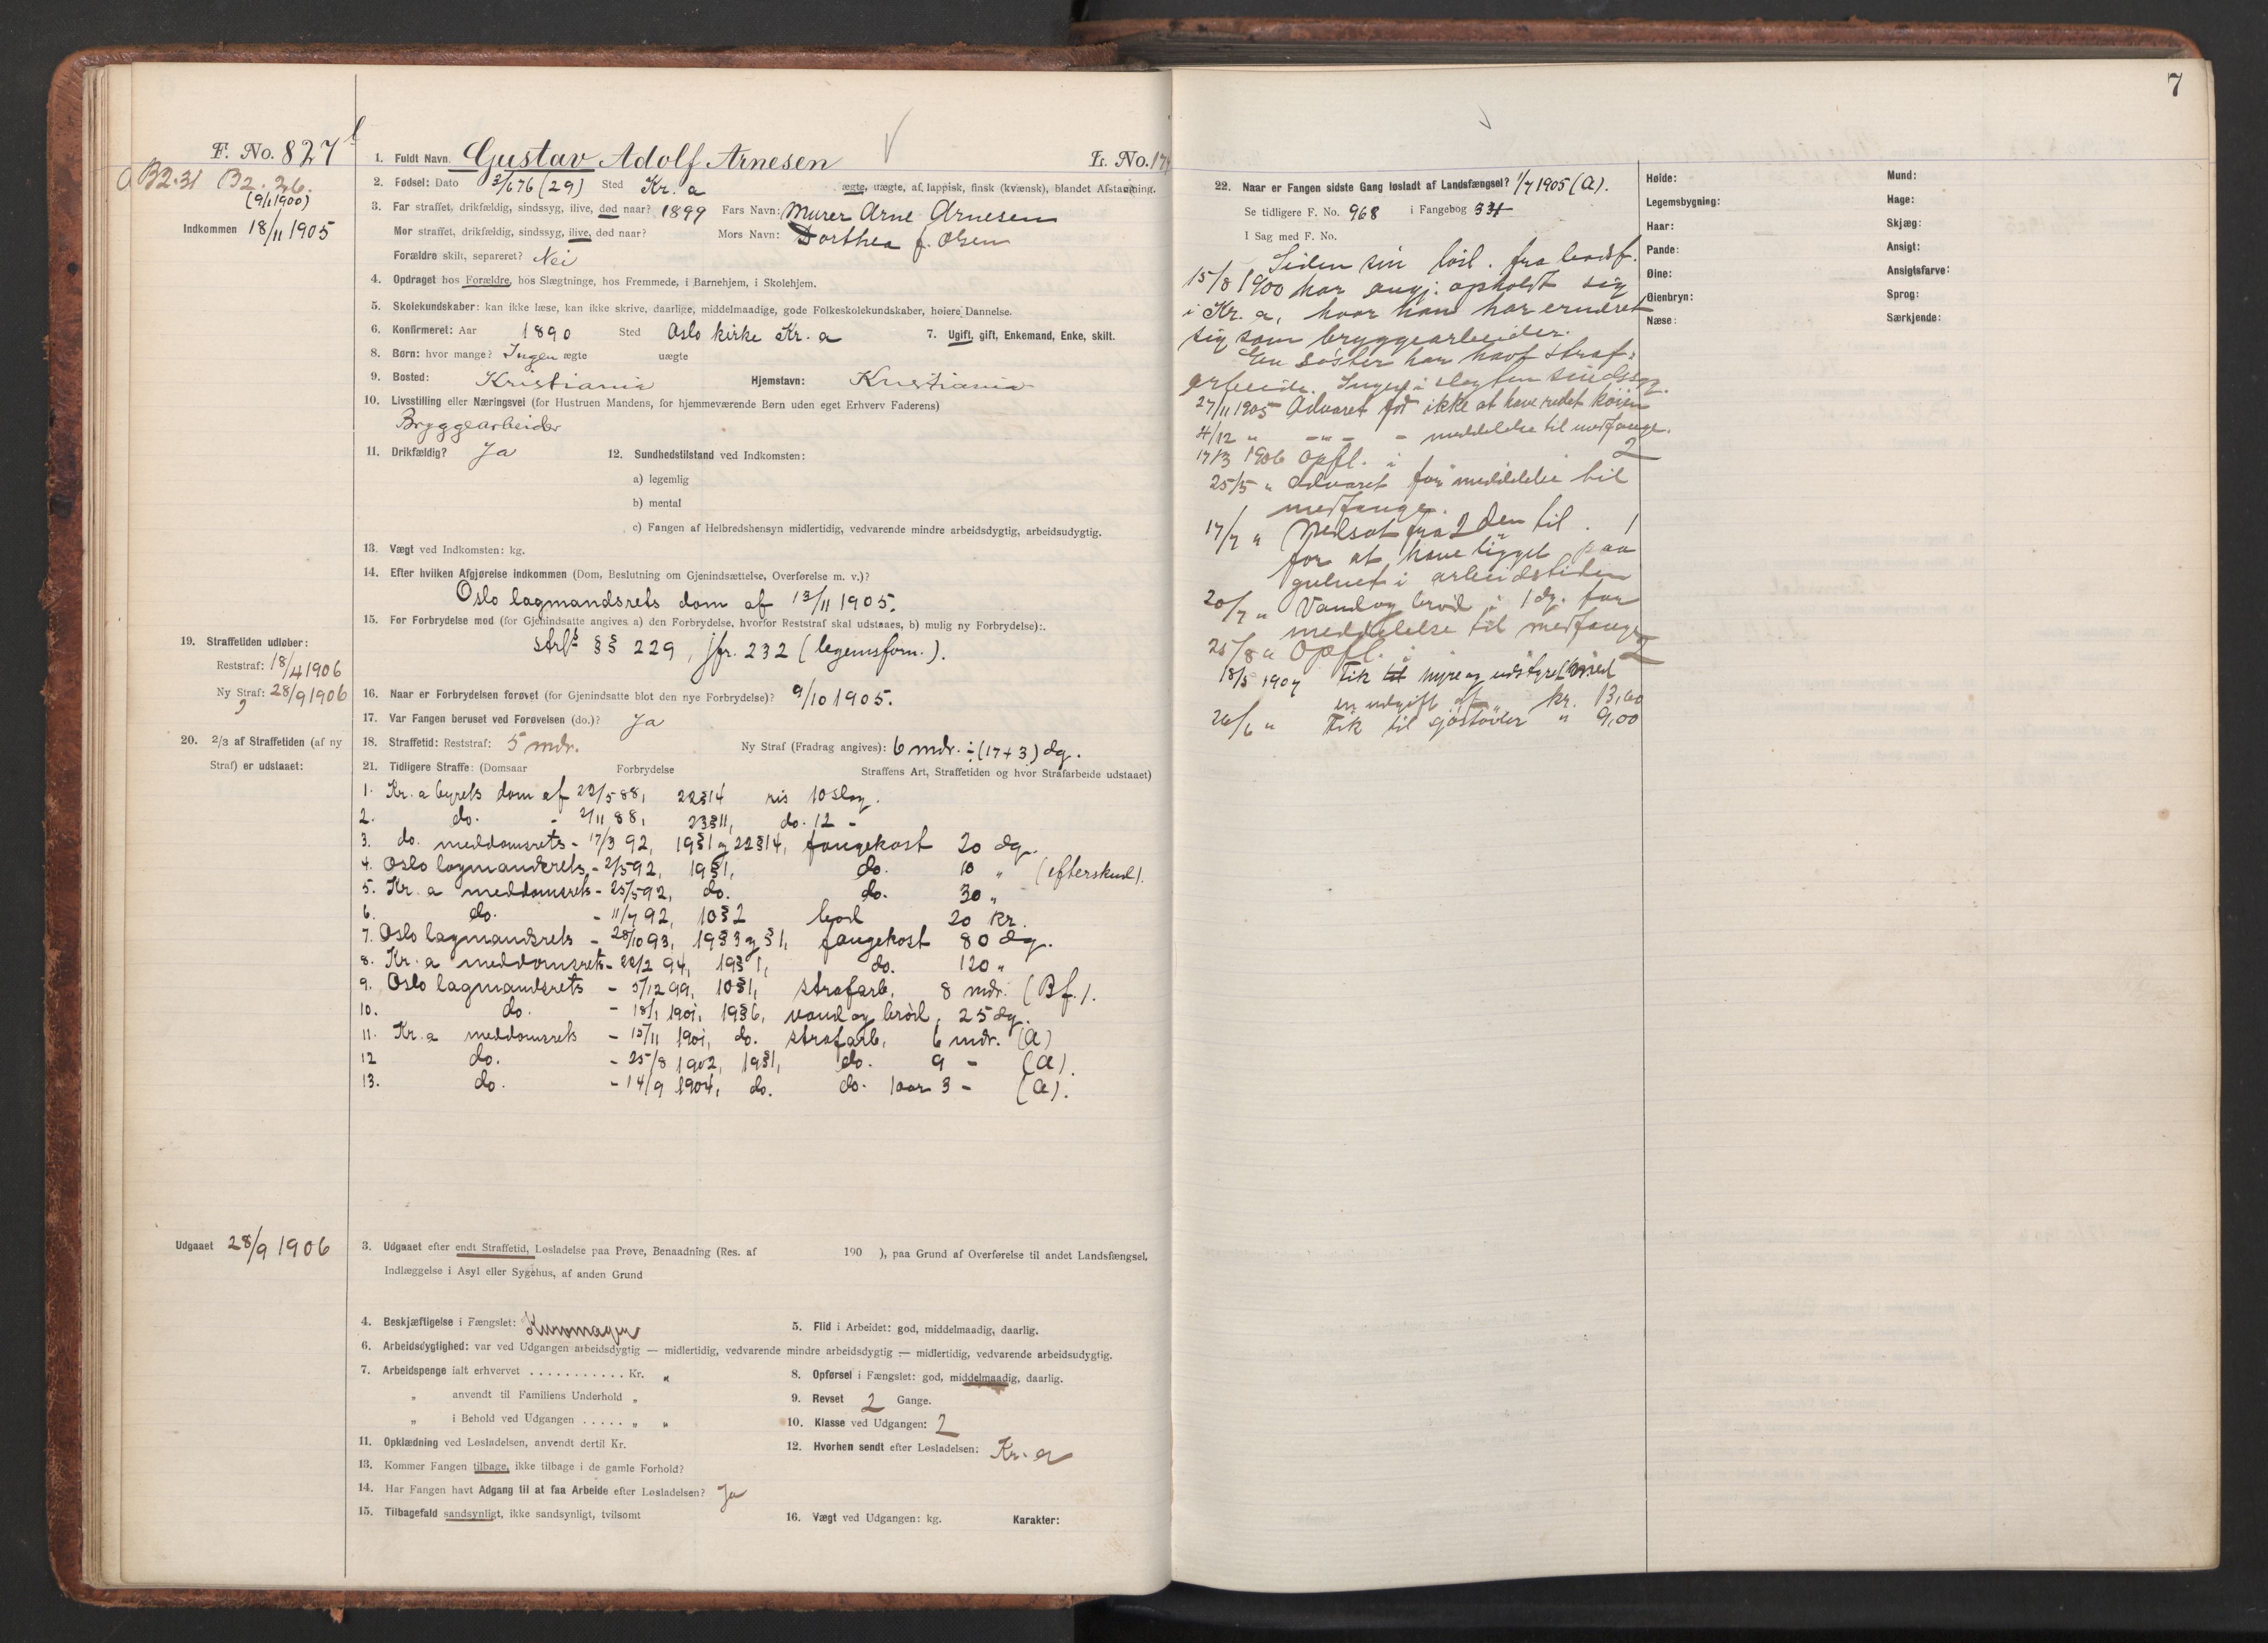 7
F. No. 827
1. Fuldt Navn Gustav Adolf Arnesen
L. No. 17
B2.31 B2.26.
(9/1 1900)
Indkommen 18/11 1905
2. Fødsel: Dato 3/6 76 (29) Sted Kr.a ægte, uægte, af lappisk, finsk (kvænsk), blandet Afstamning.
3. Far straffet, drikfældig, sindssyg, ilive, død naar? 1899 Fars Navn: Murer Arne Arnesen
Mor straffet, drikfældig, sindssyg, ilive, død naar? Mors Navn: Dorthea f. Olsen
Forældre skilt, separeret? Nei
4. Opdraget hos Forældre, hos Slægtninge, hos Fremmede, i Barnehjem, i Skolehjem.
5. Skolekundskaber: kan ikke læse, kan ikke skrive, daarlige, middelmaadige, gode Folkeskolekundskaber, høiere Dannelse.
6. Konfirmeret: Aar 1890 Sted Oslo kirke Kr.a 7. Ugift, gift, Enkemand, Enke, skilt.
8. Børn: hvor mange? Ingen ægte uægte
9. Bosted: Kristiania Hjemstavn: Kristiania
10. Livsstilling eller Næringsvei (for Hustruen Mandens, for hjemmeværende Børn uden eget Erhverv Faderens)
Bryggearbeider
11. Drikfældig? Ja 12. Sundhedstilstand ved Indkomsten:
a) legemlig
b) mental
c) Fangen af Helbredshensyn midlertidig, vedvarende mindre arbeidsdygtig, arbeidsudygtig.
13. Vægt ved Indkomsten: kg.
14. Efter hvilken Afgjørelse indkommen (Dom, Beslutning om Gjenindsættelse, Overførelse m. v.)?
Oslo lagmandsrets dom af 13/11 1905.
15. For Forbrydelse mod (for Gjenindsatte angives a) den Forbrydelse, hvorfor Reststraf skal udstaaes, b) mulig ny Forbrydelse):
Strl §§ 229, jfr. 232 (legemsforn.).
19. Straffetiden udløber:
Reststraf: 18/4 1906
Ny Straf: 28/9 1906
16. Naar er Forbrydelsen forøvet (for Gjenindsatte blot den nye Forbrydelse)? 9/10 1905.
17. Var Fangen beruset ved Forøvelsen (do.)? Ja
20. 2/3 af Straffetiden (af ny Straf) er udstaaet:
18. Straffetid: Reststraf: 5 mdr. Ny Straf (Fradrag angives): 6 mdr. ÷ (17+3) dg.
21. Tidligere Straffe: (Domsaar Forbrydelse Straffens Art, Straffetiden og hvor Strafarbeide udstaaet)
1. Kr.a byrets dom af 23/5 88, 22§14 ris 10 slag.
2. do. - 2/11 88, 23§11, do. 12 -
3. do. meddomsrets - 17/3 92, 19§1 og 22§14, fangekost 20 dg.
4. Oslo lagmandsrets - 2/5 92, 19§1, do. 10 " (efterskud).
5. Kr.a meddomsrets - 25/5 92, do. do. 30 "
6. do. - 11/7 92, 10§2 bod 20 kr.
7. Oslo lagmandsrets - 28/10 93, 19§3 og §1, fangekost 80 dg.
8. Kr.a meddomsrets - 22/2 94, 19§1, do. 120 "
9. Oslo lagmandsrets - 5/12 99, 10§1, strafarb. 8 mdr. (Bf.).
10. do. - 18/1 1901, 19§6, vand og brød, 25 dg.
11. Kr.a meddomsrets - 15/11 1901, do. strafarb. 6 mdr. (A)
12 do. - 25/8 1902, 19§1, do. 9 - (A).
13. do. - 14/9 1904, do. do. 1 aar 3 - (A).
Udgaaet 28/9 1906
3. Udgaaet efter endt Straffetid, Løsladelse paa Prøve, Benaadning (Res. af 190 ), paa Grund af Overførelse til andet Landsfængsel,
Indlæggelse i Asyl eller Sygehus, af anden Grund
4. Beskjæftigelse i Fængslet: 5. Flid i Arbeidet: god, middelmaadig, daarlig.
6. Arbeidsdygtighed: var ved Udgangen arbeidsdygtig — midlertidig, vedvarende mindre arbeidsdygtig — midlertidig, vedvarende arbeidsudygtig.
7. Arbeidspenge ialt erhvervet . . . . . . . . . . . Kr. " 8. Opførsel i Fængslet: god, middelmaadig, daarlig.
" anvendt til Familiens Underhold " 9. Revset 2 Gange.
" i Behold ved Udgangen . . . . . " " 10. Klasse ved Udgangen: 2
11. Opklædning ved Løsladelsen, anvendt dertil Kr. 12. Hvorhen sendt efter Løsladelsen: Kr.a
13. Kommer Fangen tilbage, ikke tilbage i de gamle Forhold?
14. Har Fangen havt Adgang til at faa Arbeide efter Løsladelsen? Ja
15. Tilbagefald sandsynligt, ikke sandsynligt, tvilsomt 16. Vægt ved Udgangen: kg. Karakter:
22. Naar er Fangen sidste Gang løsladt af Landsfængsel? 1/7 1905 (A).
Se tidligere F. No. 968 i Fangebog 34
I Sag med F. No.
Siden sin løsl. fra bodsf.
15/8 1900 har angj. opholdt sig
i Kr.a, hvor han har ernæret
sig som bryggearbeider.
En søster har havt straf-
arbeide. Ingen i slegten sindssyg.
27/11 1905 Advaret for ikke at have redet køien
4/12 " -"- - meddelelse til medfange.
17/3 1906 Opfl. i 2
25/5 " Advaret for meddelelse til
medfange.
17/7 " Nedsat fra 2den til 1
for at have ligget paa
gulvet i arbeidstiden
20/7 " Vand og brød i 1 dg. for
meddelelse til medfange
25/8 " Opfl. i 2
18/5 1907 Fik til hyre og udstyret med
en udgift af kr. 13,60
26/6 " Fik til sjøstøvler " 9,00
Høide:
Legemsbygning:
Haar:
Pande:
Øine:
Øienbryn:
Næse:
Mund:
Hage:
Skjæg:
Ansigt:
Ansigtsfarve:
Sprog:
Særkjende: